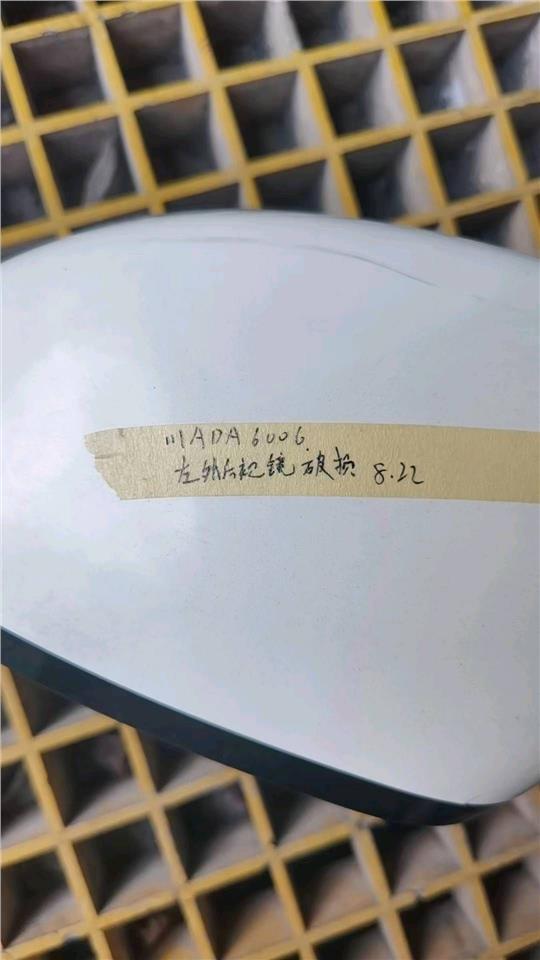 川ADA6006
左外后视镜破损 8.22